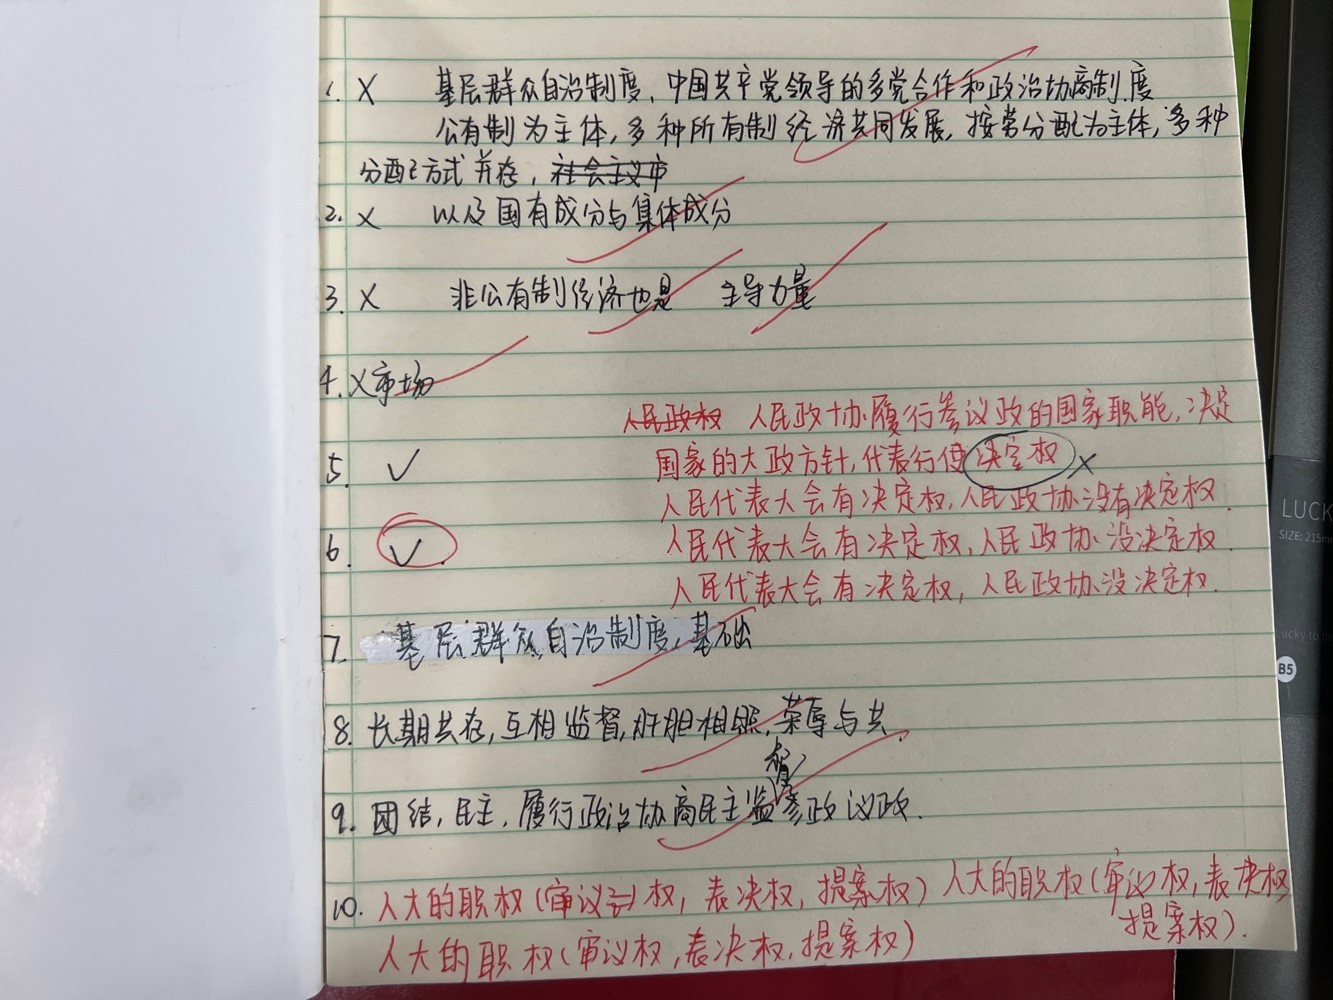 1. X 基层群众自治制度、中国共产党领导的多党合作和政治协商制度
公有制为主体，多种所有制经济共同发展，按劳分配为主体，多种
分配方式并存，社会主义市
2. X 以及国有成分与集体成分
3. X 非公有制经济也是 主导力量
4. X市场
人民政权 人民政协履行参议政的国家职能，决定
5. ✓ 国家的大政方针，代表行使决定权 X
人民代表大会有决定权，人民政协没有决定权.
6. ✓ 人民代表大会有决定权，人民政协没决定权.
人民代表大会有决定权，人民政协没决定权.
7. 基层群众自治制度，基础
8. 长期共存，互相监督，肝胆相照，荣辱与共.
9. 团结，民主，履行政治协商民主监督参政议政.
10. 人大的职权(审议权，表决权，提案权) 人大的职权(审议权，表决权
提案权).
人大的职权(审议权，表决权，提案权)
LUCK
SIZE: 215m
Lucky to b
B5